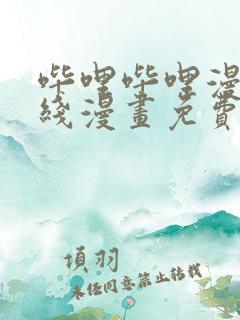 哔哩哔哩漫
线漫畫免費
項羽
未经同意禁止转载